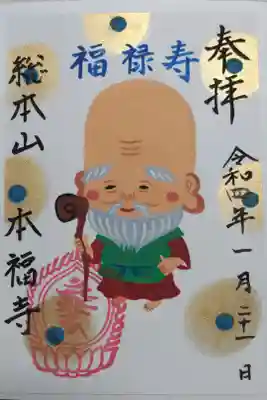 奉拝
福禄寿
総本山
本福寺
令和四年一月二十一日